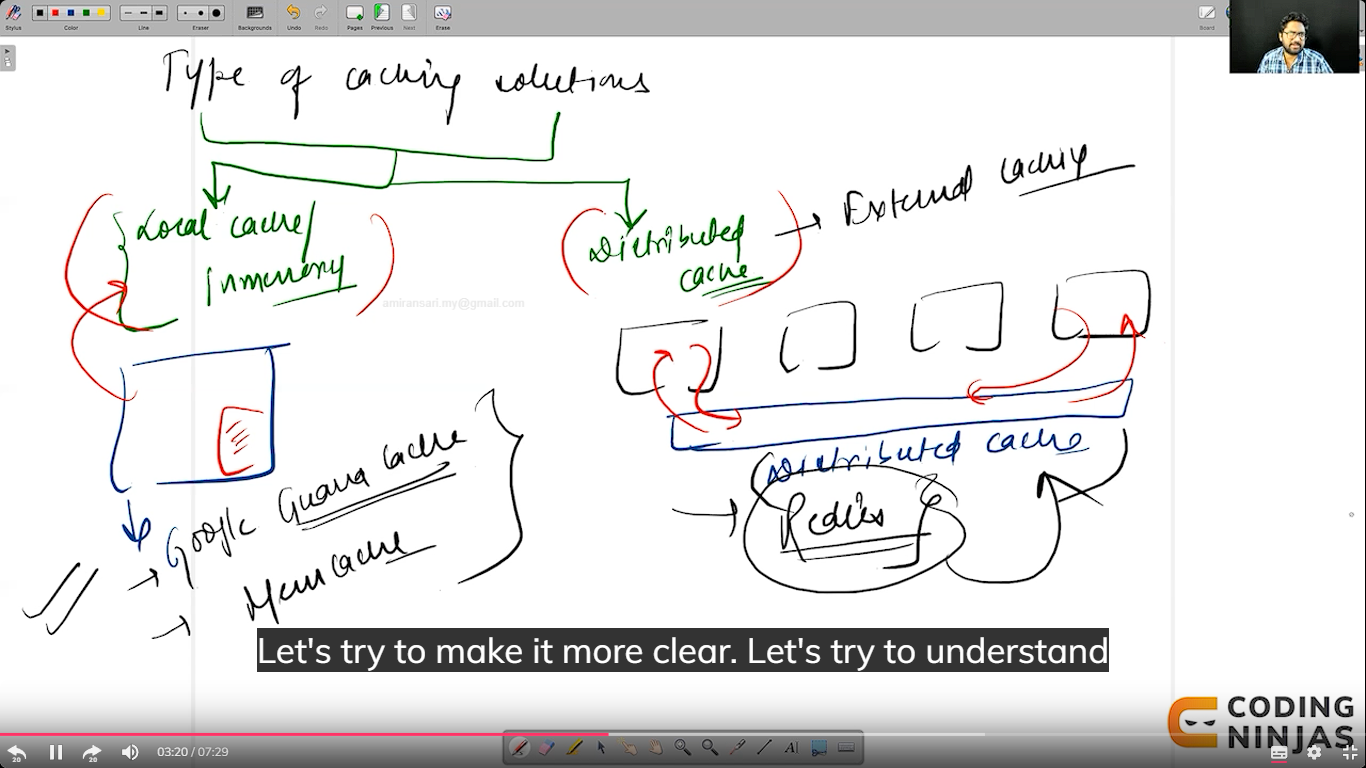 Stylus
Color
Line
Eraser
Backgrounds
Undo
Redo
Pages
Previous
Next
Erase
Board
Type of caching solutions
Local cache/
Inmemory
Distributed
cache
External caching
amiransari.my@gmail.com
Distributed cache
Redis
Google Guava Cache
Memcache
Let's try to make it more clear. Let's try to understand
CODING
NINJAS
20
20
03:20 / 07:29